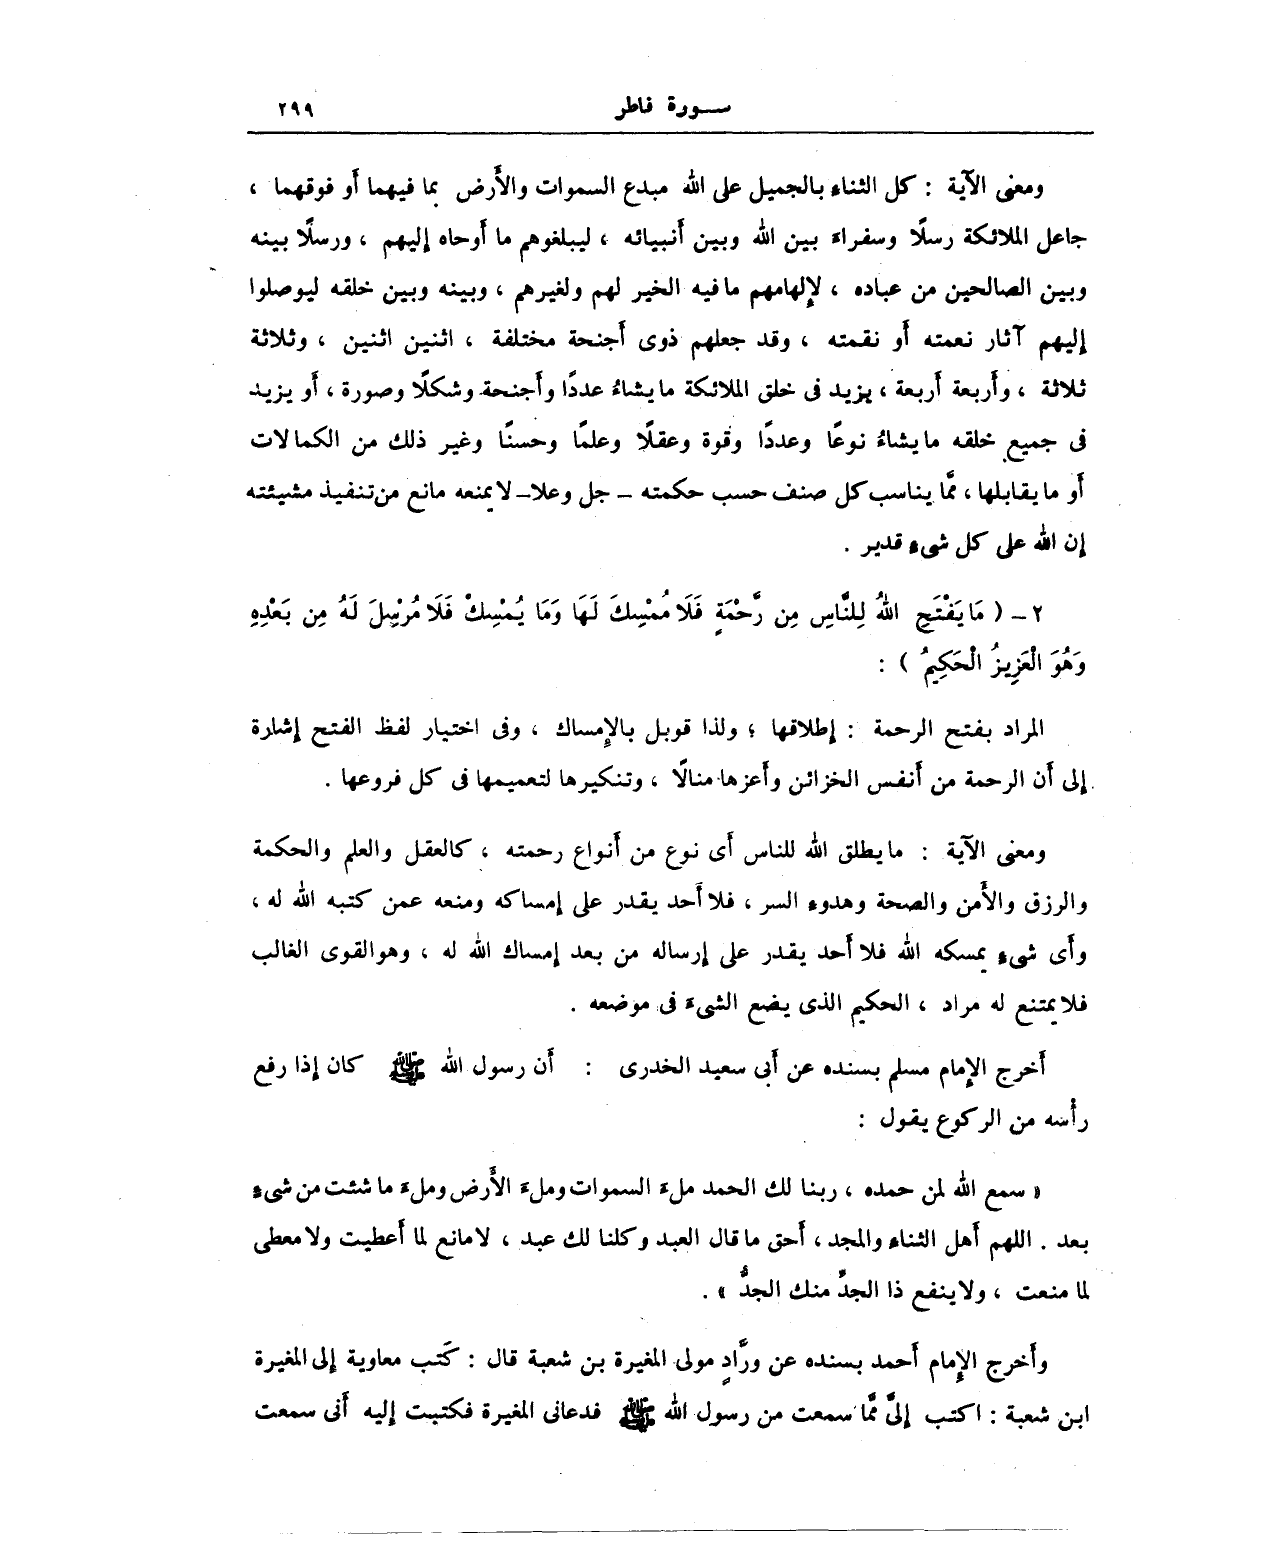 سورة فاطر ٢٩٩
ومعنى الآية : كل الثناء بالجميل على الله مبدع السموات والأَرض بما فيهما أَو فوقهما ،
جاعل الملائكة رسلًا وسفراءَ بين الله وبين أَنبيائه ، ليبلغوهم ما أَوحاه إِليهم ، ورسلًا بينه
وبين الصالحين من عباده ، لإِلهامهم ما فيه الخير لهم ولغيرهم ، وبينه وبين خلقه ليوصلوا
إِليهم آثار نعمته أَو نقمته ، وقد جعلهم ذوى أَجنحة مختلفة ، اثنين اثنين ، وثلاثة
ثلاثة ، وأَربعة أَربعة ، يزيد فى خلق الملائكة ما يشاءُ عددًا وأَجنحة وشكلًا وصورة ، أَو يزيد
فى جميع خلقه ما يشاءُ نوعًا وعددًا وقوة وعقلًا وعلمًا وحسنًا وغير ذلك من الكمالات
أَو ما يقابلها ، ممَّا يناسب كل صنف حسب حكمته - جل وعلا - لا يمنعه مانع من تنفيذ مشيئته
إِن الله على كل شىءٍ قدير .
٢ - ( مَا يَفْتَحِ اللهُ لِلنَّاسِ مِن رَّحْمَةٍ فَلَا مُمْسِكَ لَهَا وَمَا يُمْسِكْ فَلَا مُرْسِلَ لَهُ مِن بَعْدِهِ
وَهُوَ الْعَزِيزُ الْحَكِيمُ ) :
المراد بفتح الرحمة : إِطلاقها ؛ ولذا قوبل بالإِمساك ، وفى اختيار لفظ الفتح إِشارة
إِلى أَن الرحمة من أَنفس الخزائن وأَعزها منالًا ، وتنكيرها لتعميمها فى كل فروعها .
ومعنى الآية : ما يطلق الله للناس أَى نوع من أَنواع رحمته ، كالعقل والعلم والحكمة
والرزق والأَمن والصحة وهدوء السر ، فلا أَحد يقدر على إِمساكه ومنعه عمن كتبه الله له ،
وأَى شىءٍ يمسكه الله فلا أَحد يقدر على إِرساله من بعد إِمساك الله له ، وهو القوى الغالب
فلا يمتنع له مراد ، الحكيم الذى يضع الشىءَ فى موضعه .
أَخرج الإِمام مسلم بسنده عن أَبى سعيد الخدرى : أَن رسول الله ﷺ كان إِذا رفع
رأْسه من الركوع يقول :
« سمع الله لمن حمده ، ربنا لك الحمد ملءَ السموات وملءَ الأَرض وملءَ ما شئت من شىءٍ
بعد . اللهم أَهل الثناء والمجد ، أَحق ما قال العبد وكلنا لك عبد ، لا مانع لما أَعطيت ولا معطى
لما منعت ، ولا ينفع ذا الجدِّ منك الجدُّ » .
وأَخرج الإِمام أَحمد بسنده عن ورَّادٍ مولى المغيرة بن شعبة قال : كَتب معاوية إِلى المغيرة
ابن شعبة : اكتب إِلىَّ ممَّا سمعت من رسول الله ﷺ فدعانى المغيرة فكتبت إِليه أَنى سمعت